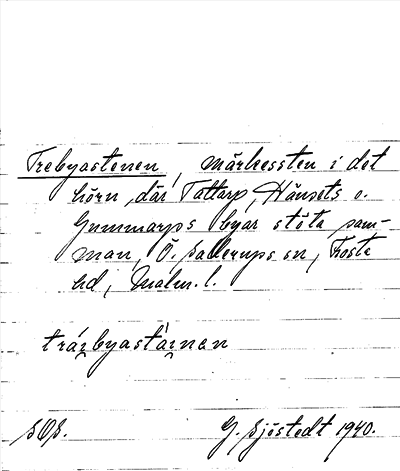 Trebyastenen, märkessten i det
hörn, där Tattarp, Hänsets o.
Gummarps byar stöta sam-
man, Ö. Sallerups sn, Frosta
hd, Malm. l.
trä́i̯byastäi̯nen
SOS.
G. Sjöstedt 1940.